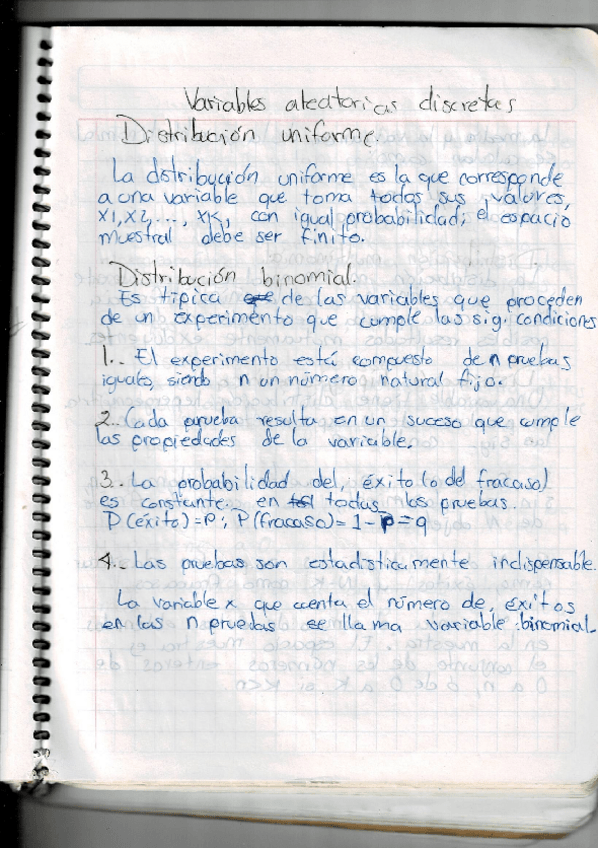 Variables aleatorias discretas
Distribución uniforme.
La distribución uniforme es la que corresponde
a una variable que toma todos sus valores,
x1, x2, ..., xK, con igual probabilidad; el espacio
muestral debe ser finito.
Distribución binomial.
Es típica de las variables que proceden
de un experimento que cumple las sig. condiciones
1.- El experimento está compuesto de n pruebas
iguales, siendo n un número natural fijo.
2.- Cada prueba resulta en un suceso que cumple
las propiedades de la variable.
3.- La probabilidad del éxito (o del fracaso)
es constante en todas las pruebas.
P(éxito)=P; P(fracaso)=1-P=q
4.- Las pruebas son estadísticamente indispensable.
La variable x que cuenta el número de éxitos
en las n pruebas se llama variable binomial.